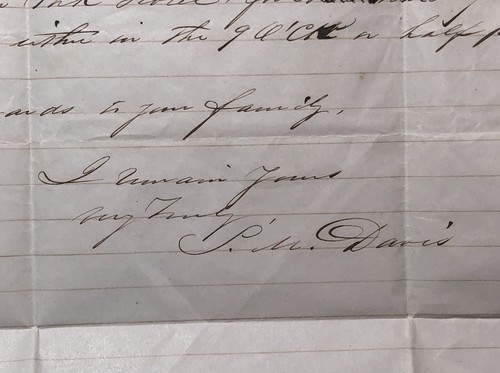 either in the 9 O'Ck or half p
ards to your family,
I remain Yours
very Truly
S. M. Davis